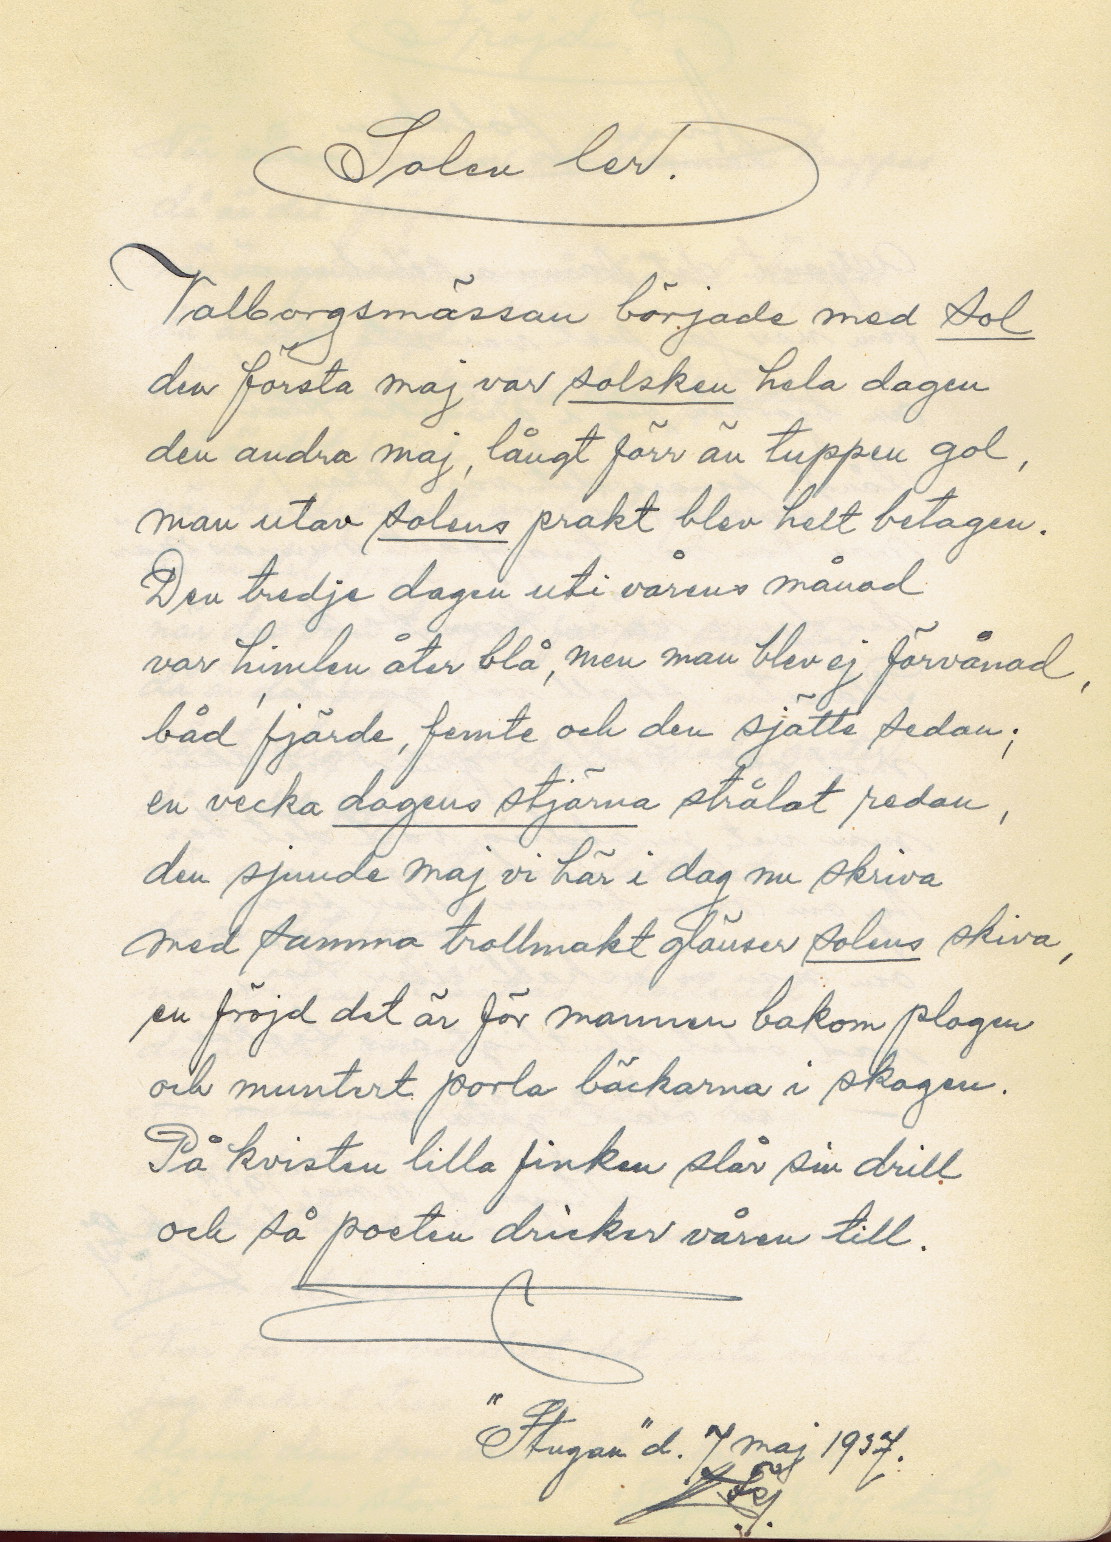 Solen ler.
Valborgsmässan började med sol
den första maj var solsken hela dagen
den andra maj, långt förr än tuppen gol,
man utav solens prakt blev helt betagen.
Den tredje dagen uti vårens månad
var himlen åter blå, men man blev ej förvånad,
båd' fjärde, femte och den sjätte sedan;
en vecka dagens stjärna strålat redan,
den sjunde maj vi här i dag nu skriva
med samma trollmakt glänser solens skiva,
en fröjd det är för mannen bakom plogen
och muntert porla bäckarna i skogen.
På kvisten lilla finken slår sin drill
och så poeten dricker våren till.
"Stugan" d. 7 maj 1937.